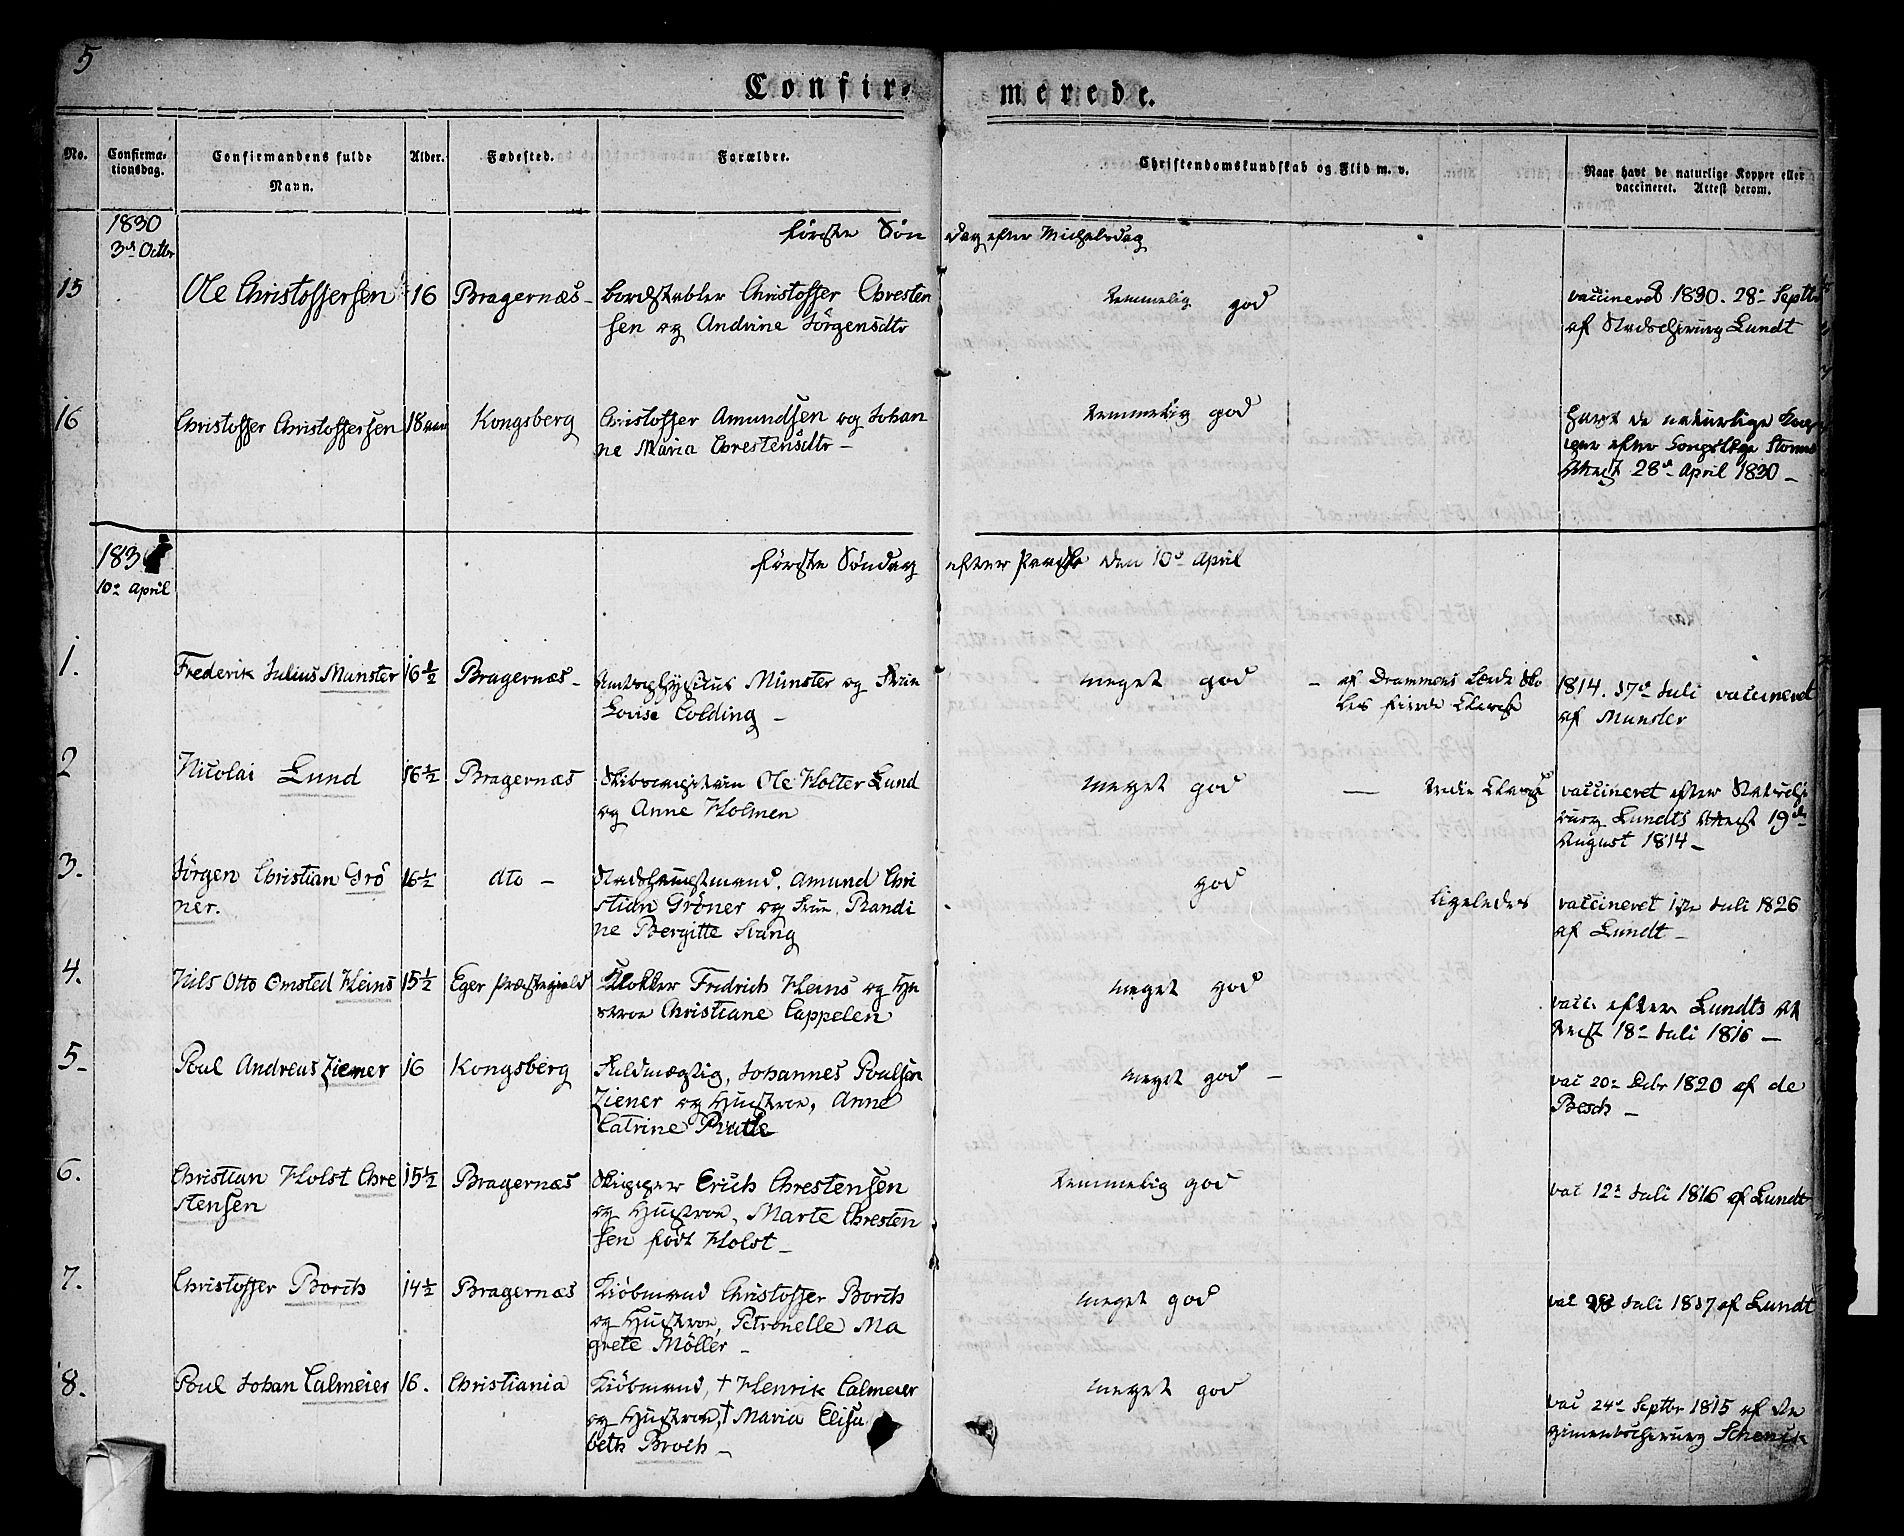 5
Confirmerede.
No.
Confirma-
tionsdag.
Confirmandens fulde
Navn.
Alder.
Fødested.
Forældre.
Christendomskundskab og Flid m. v.
Naar havt de naturlige Kopper eller
vaccineret. Attest derom.
1830
3d Octbr
første Søndag efter Michelsdag
15 Ole Christoffersen 16 Bragernæs - Bordstabler Christoffer Chresten
sen og Andrine Jörgensdtr
temmelig god
vaccineret 1830. 28de Septbr
af Stadschirurg Lundt
16 Christoffer Christoffersen 18 Kongsberg Christoffer Amundsen og Johan
ne Maria Chrestensdtr -
temmelig god
Havt de naturlige Kop
per efter
Attest 28de April 1830 -
183
10de April
første Søndag efter Paaske den 10de April
1. Frederik Julius Munster 16½ Bragernæs - Amtsphysicus Munster og Frue
Lovise Colding -
meget god - af Drammens Lærde Sko
les fierde Classe
1814. 17de Juli vaccineret
af Munster
2 Nicolai Lund 16½ Bragernæs Skibscapitain Ole Holter Lund
og Anne Holmen
meget god - tredie Classe
vaccineret efter Stadschi
rurg Lundts Attest 19de
August 1814 -
3. Jörgen Christian Grö
ner.
16½ dto - Stadshauptmand, Amund Chri
stian Gröner og Frue, Randi
ne Bergitte Svang
god
ligeledes
vaccineret 1ste Juli 1826
af Lundt -
4. Nils Otto Omsted Heins 15½ Eger Præstegield Klokker Fredrich Heins og Hu
stroe Christiane Cappelen
meget god
vacc. efter Lundts At
test 18de Juli 1816 -
5- Poul Andreas Ziener 16 Kongsberg Fuldmægtig, Johannes Poulsen
Ziener og Hustroe, Anne
Catrine
meget god -
vac 20de Debr 1820 af de
Besch -
6. Christian Holst Chre
stensen
15½ Bragernæs Skipper Erich Chrestensen
og Hustroe, Marte Chresten
sen født Holst -
temmelig god
vac 12de Juli 1816 af Lundt
7. Christoffer Borch 14½ Bragernæs Kiöbmand Christoffer Borch
og Hustroe, Petronelle Ma
grete Möller -
meget god
vac 28 Juli 1817 af Lundt
8. Poul Johan Calmeier 16. Christiania Kiöbmand, † Henrik Calmeier
og Hustroe, † Maria Elisa
beth Broch -
meget god
vac 24de Septbr 1815 af Re
gimentschirurg Schenck